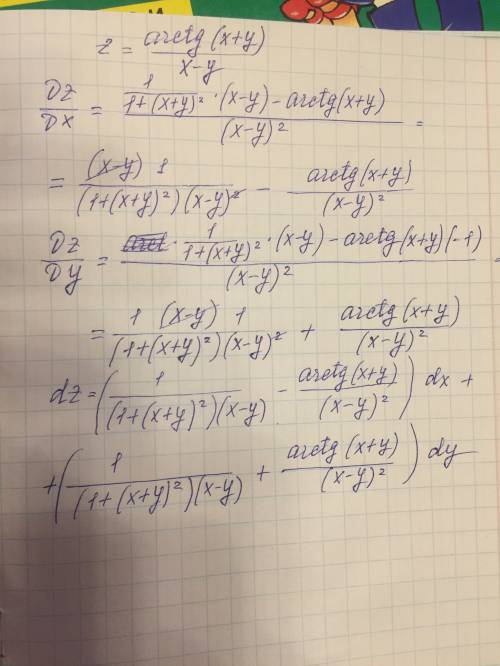 z = arctg(x+y) / x-y
Dz/Dx = (1/(1+(x+y)²) · (x-y) - arctg(x+y)) / (x-y)² =
= (x-y) 1 / (1+(x+y)²)(x-y)² - arctg(x+y) / (x-y)²
Dz/Dy = (· 1/(1+(x+y)²) · (x-y) - arctg(x+y)(-1)) / (x-y)² =
= 1 (x-y) 1 / (1+(x+y)²)(x-y)² + arctg(x+y) / (x-y)²
dz = (1 / (1+(x+y)²)(x-y) - arctg(x+y) / (x-y)²) dx +
+ (1 / (1+(x+y)²)(x-y) + arctg(x+y) / (x-y)²) dy